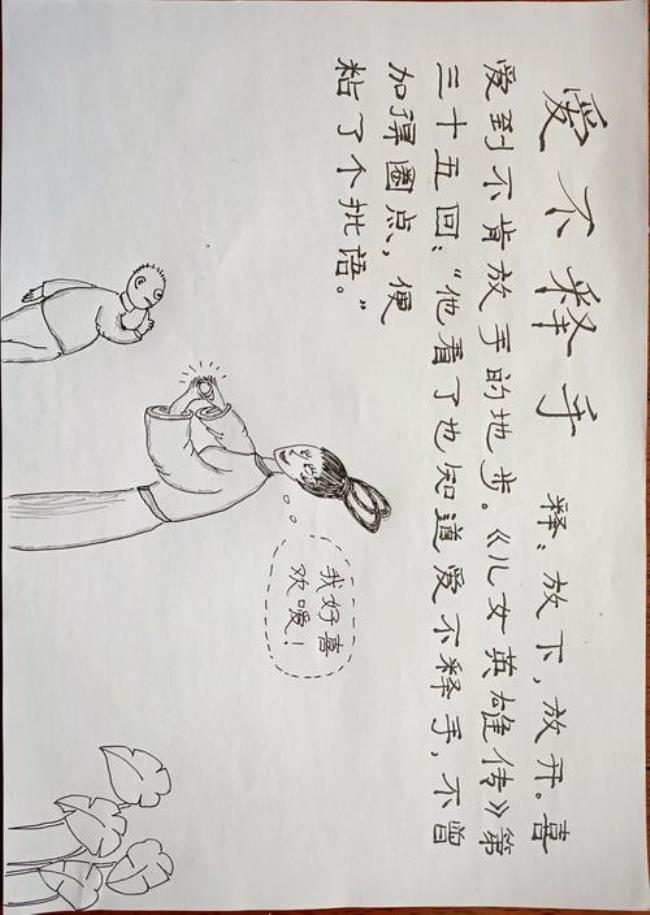 爱不释手 释:放下,放开。喜
爱到不肯放手的地步。《儿女英雄传》第
三十五回:“他看了也知道爱不释手,不曾
加得圈点,便
粘了个批语。”
我好喜
欢嗳!